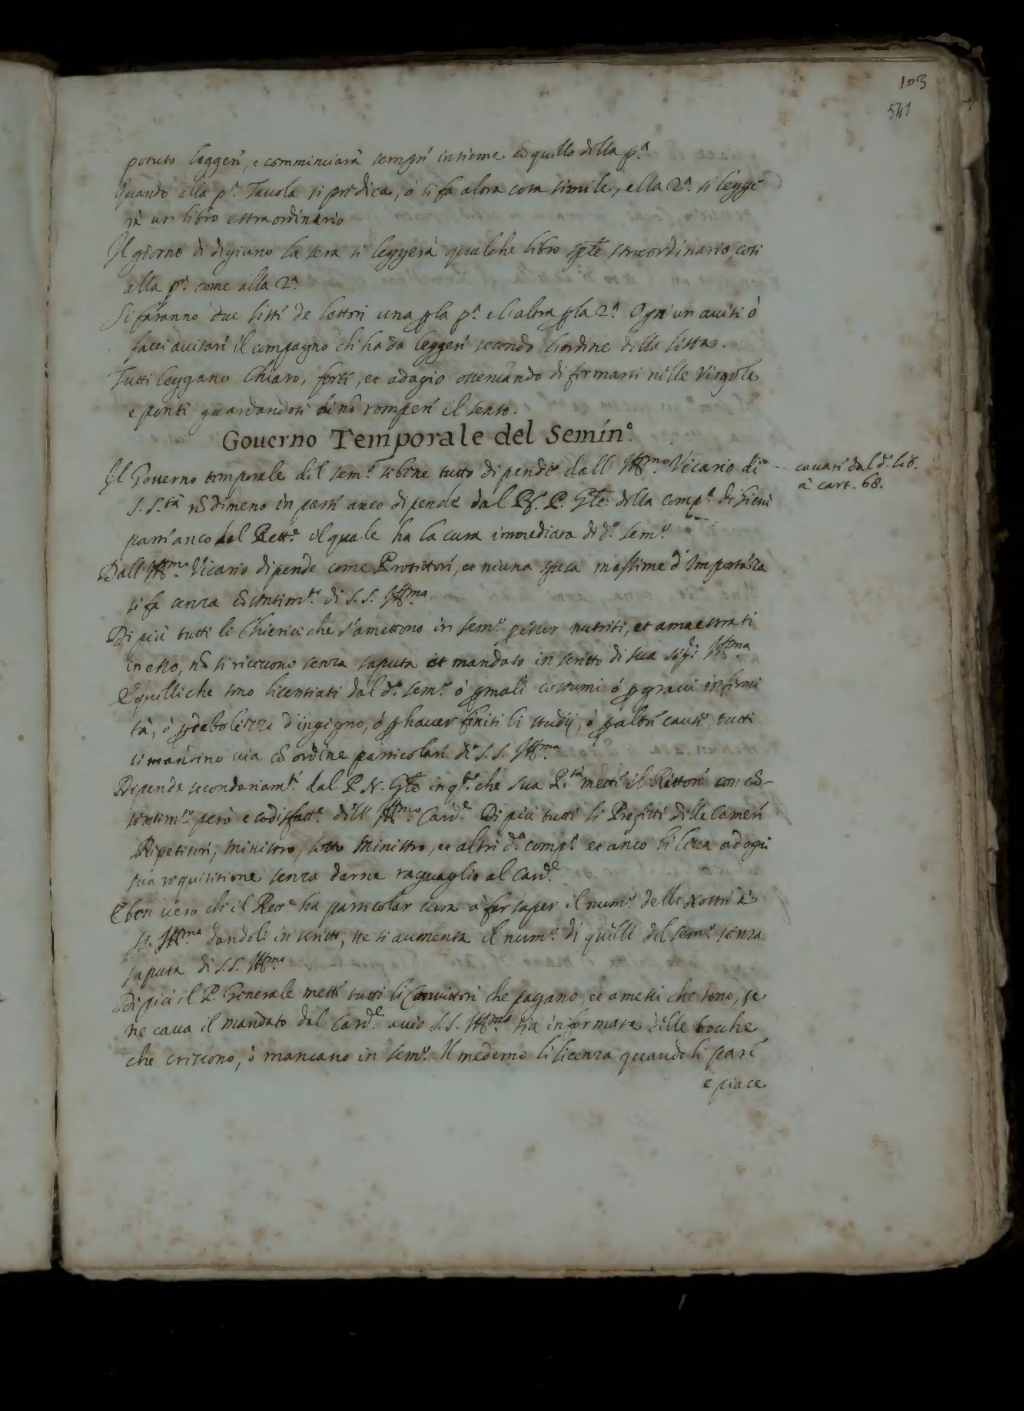 103
541
potuto legger, e comminciarà sempre insieme cō quello della p.ª
Quando alla p.ª Tauola si predica, ò si fa altra cosa simile, alla 2.ª si legge
rà un libro estraordinario
Il giorno di digiuno la sera si leggerà qualche libro sp̄le straordinario, cosi
alla p.ª come alla 2.ª
Si faranno due liste de lettori una p̱ la p.ª e l'altra p̱ la 2.ª Ogn'un auisi ò
facci auisare il compagno che ha da legger secondo l'ordine della lista.
Tutti leggano chiaro, forte, et adagio osseruando di firmarsi nelle Virgole
e ponti guardandosi di nō romper il senso.
Gouerno Temporale del Semin.º
Il Gouerno temporale del sem.º sebene tutto dipende dall' Ill.mo Vicario di
S. S.tà nōdimeno in parte anco dipende dal P. Gn̄le della comp.ª di Giesù
parim anco dal Rett.e il quale ha la cura immediata di d.º sem.º
cauati dal d.º lib.
à cart. 68.
Dall' Ill.mo Vicario dipende come Protettore, et niuna spesa massime d'Importāza
si fa senza cōsentim.to di S. S. Ill.ma
Di più tutti li Chierici che s'amettono in sem.º p̱ esser nutriti, et amaestrati
in esso, nō si riceuono senza saputa et mandato in scritto di sua Sig.ria Ill.ma
E quelli che sono licentiati dal d.º sem.º ò p̱ mali costumi ò p̱ graui infirmi
tà, ò p̱ debolezza d'ingegno, ò p̱ hauer finiti li studij, ò p̱ altre cause tutti
si mandino uia cō ordine particolare di S. S. Ill.ma
Dipende secondariam.te dal P. N. Gn̄le in q.to che sua P.tà mette il Rettore con cō-
sentim.to però e sodisfatt.e dell' Ill.mo Card.le Di più tutti li Prefetti delle Camere
Ripetitori, ministro, sotto ministro, et altri d.ª comp.ª et anco li leua ad ogni
sua requisitione senza darne raguaglio al Card.le
E ben uero che il Rett.e ha particolar cura à far saper il num.º delli nostri à
S. S. Ill.ma dandoli in scritto, se si aumenta il num.º di quelli del sem.º senza
saputa di S. S. Ill.ma
Di più il P. Generale mette tutti li Conuittori che pagano, et amessi che sono, se
ne caua il mandato dal Card.le acciò S. S. Ill.ma sia informata delle bocche
che crescono, ò mancano in sem.º Il medemo li licenza quando li pare
e piace